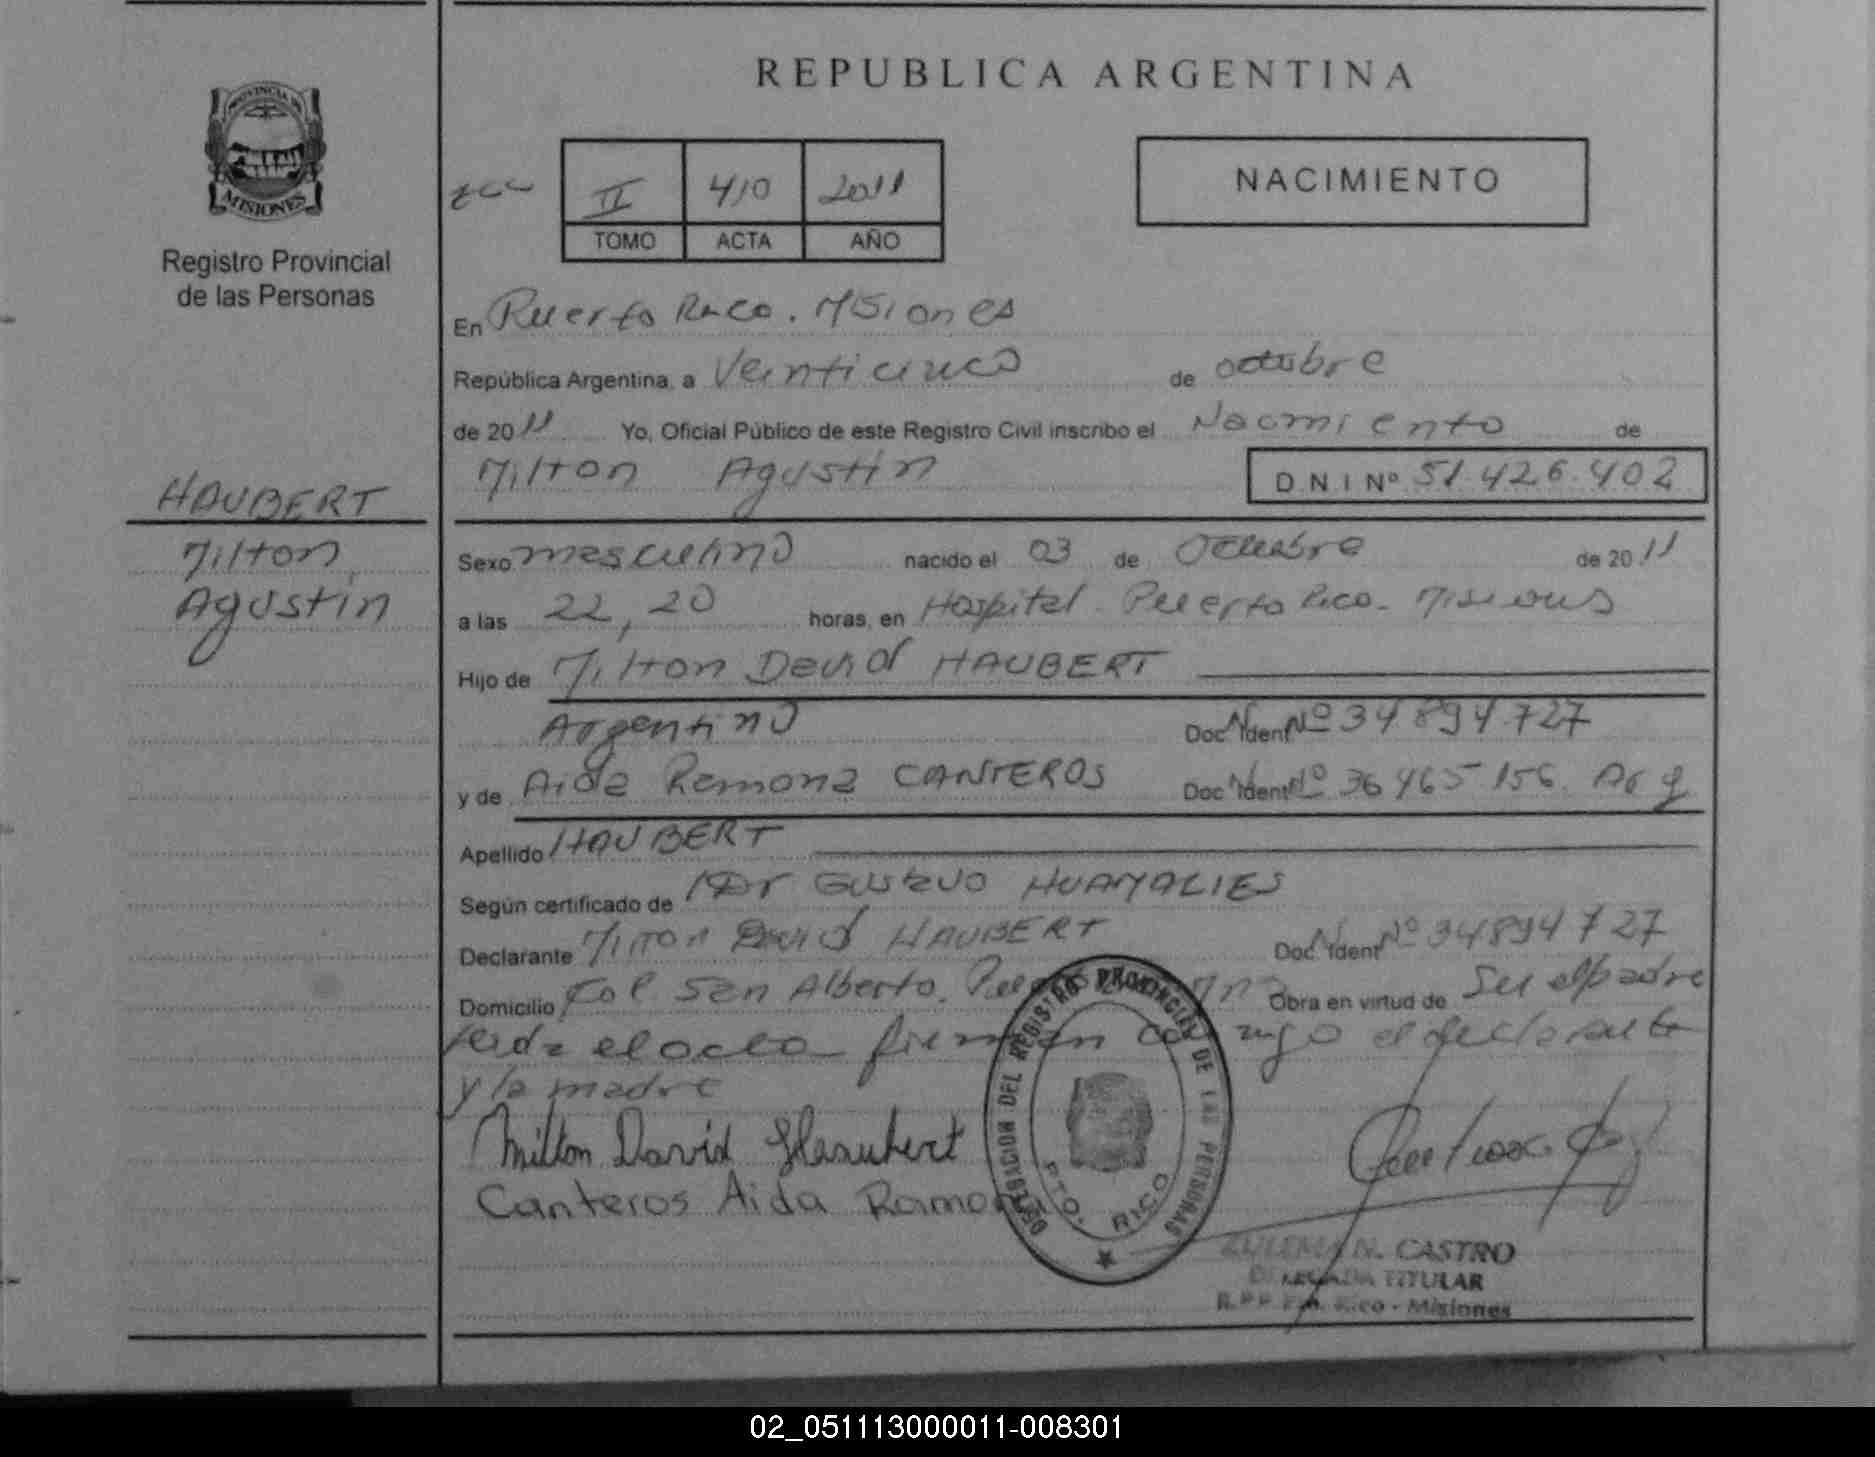 REPUBLICA ARGENTINA
PROVINCIA DE
MISIONES
Registro Provincial
de las Personas
II 410 2011
TOMO ACTA AÑO
NACIMIENTO
En Puerto Rico. Misiones
República Argentina, a Veinticinco de octubre
de 2011 Yo, Oficial Público de este Registro Civil inscribo el Nacimiento de
Milton Agustin D.N.I Nº 51.426.402
HAUBERT
Milton
Agustin
Sexo masculino nacido el 03 de Octubre de 2011
a las 22,20 horas, en Hospital. Puerto Rico. Misiones
Hijo de Milton David HAUBERT
Argentino Doc. Ident Nº 34 894 727
y de Aida Ramona CANTEROS Doc. Ident Nº 36 465 156. Arg
Apellido HAUBERT
Según certificado de Dr Gustavo HUAMALIES
Declarante Milton David HAUBERT Doc. Ident Nº 34894727
Domicilio Col. San Alberto. Obra en virtud de Ser el padre
Leida el acta firman conmigo el declarante
y la madre
Milton David Haubert
Canteros Aida Ramona
DELEGACION DEL REGISTRO PROVINCIAL DE LAS PERSONAS
PTO. RICO
ZULEMA N. CASTRO
DELEGADA TITULAR
R.P.P. Pto. Rico - Misiones
02_051113000011-008301